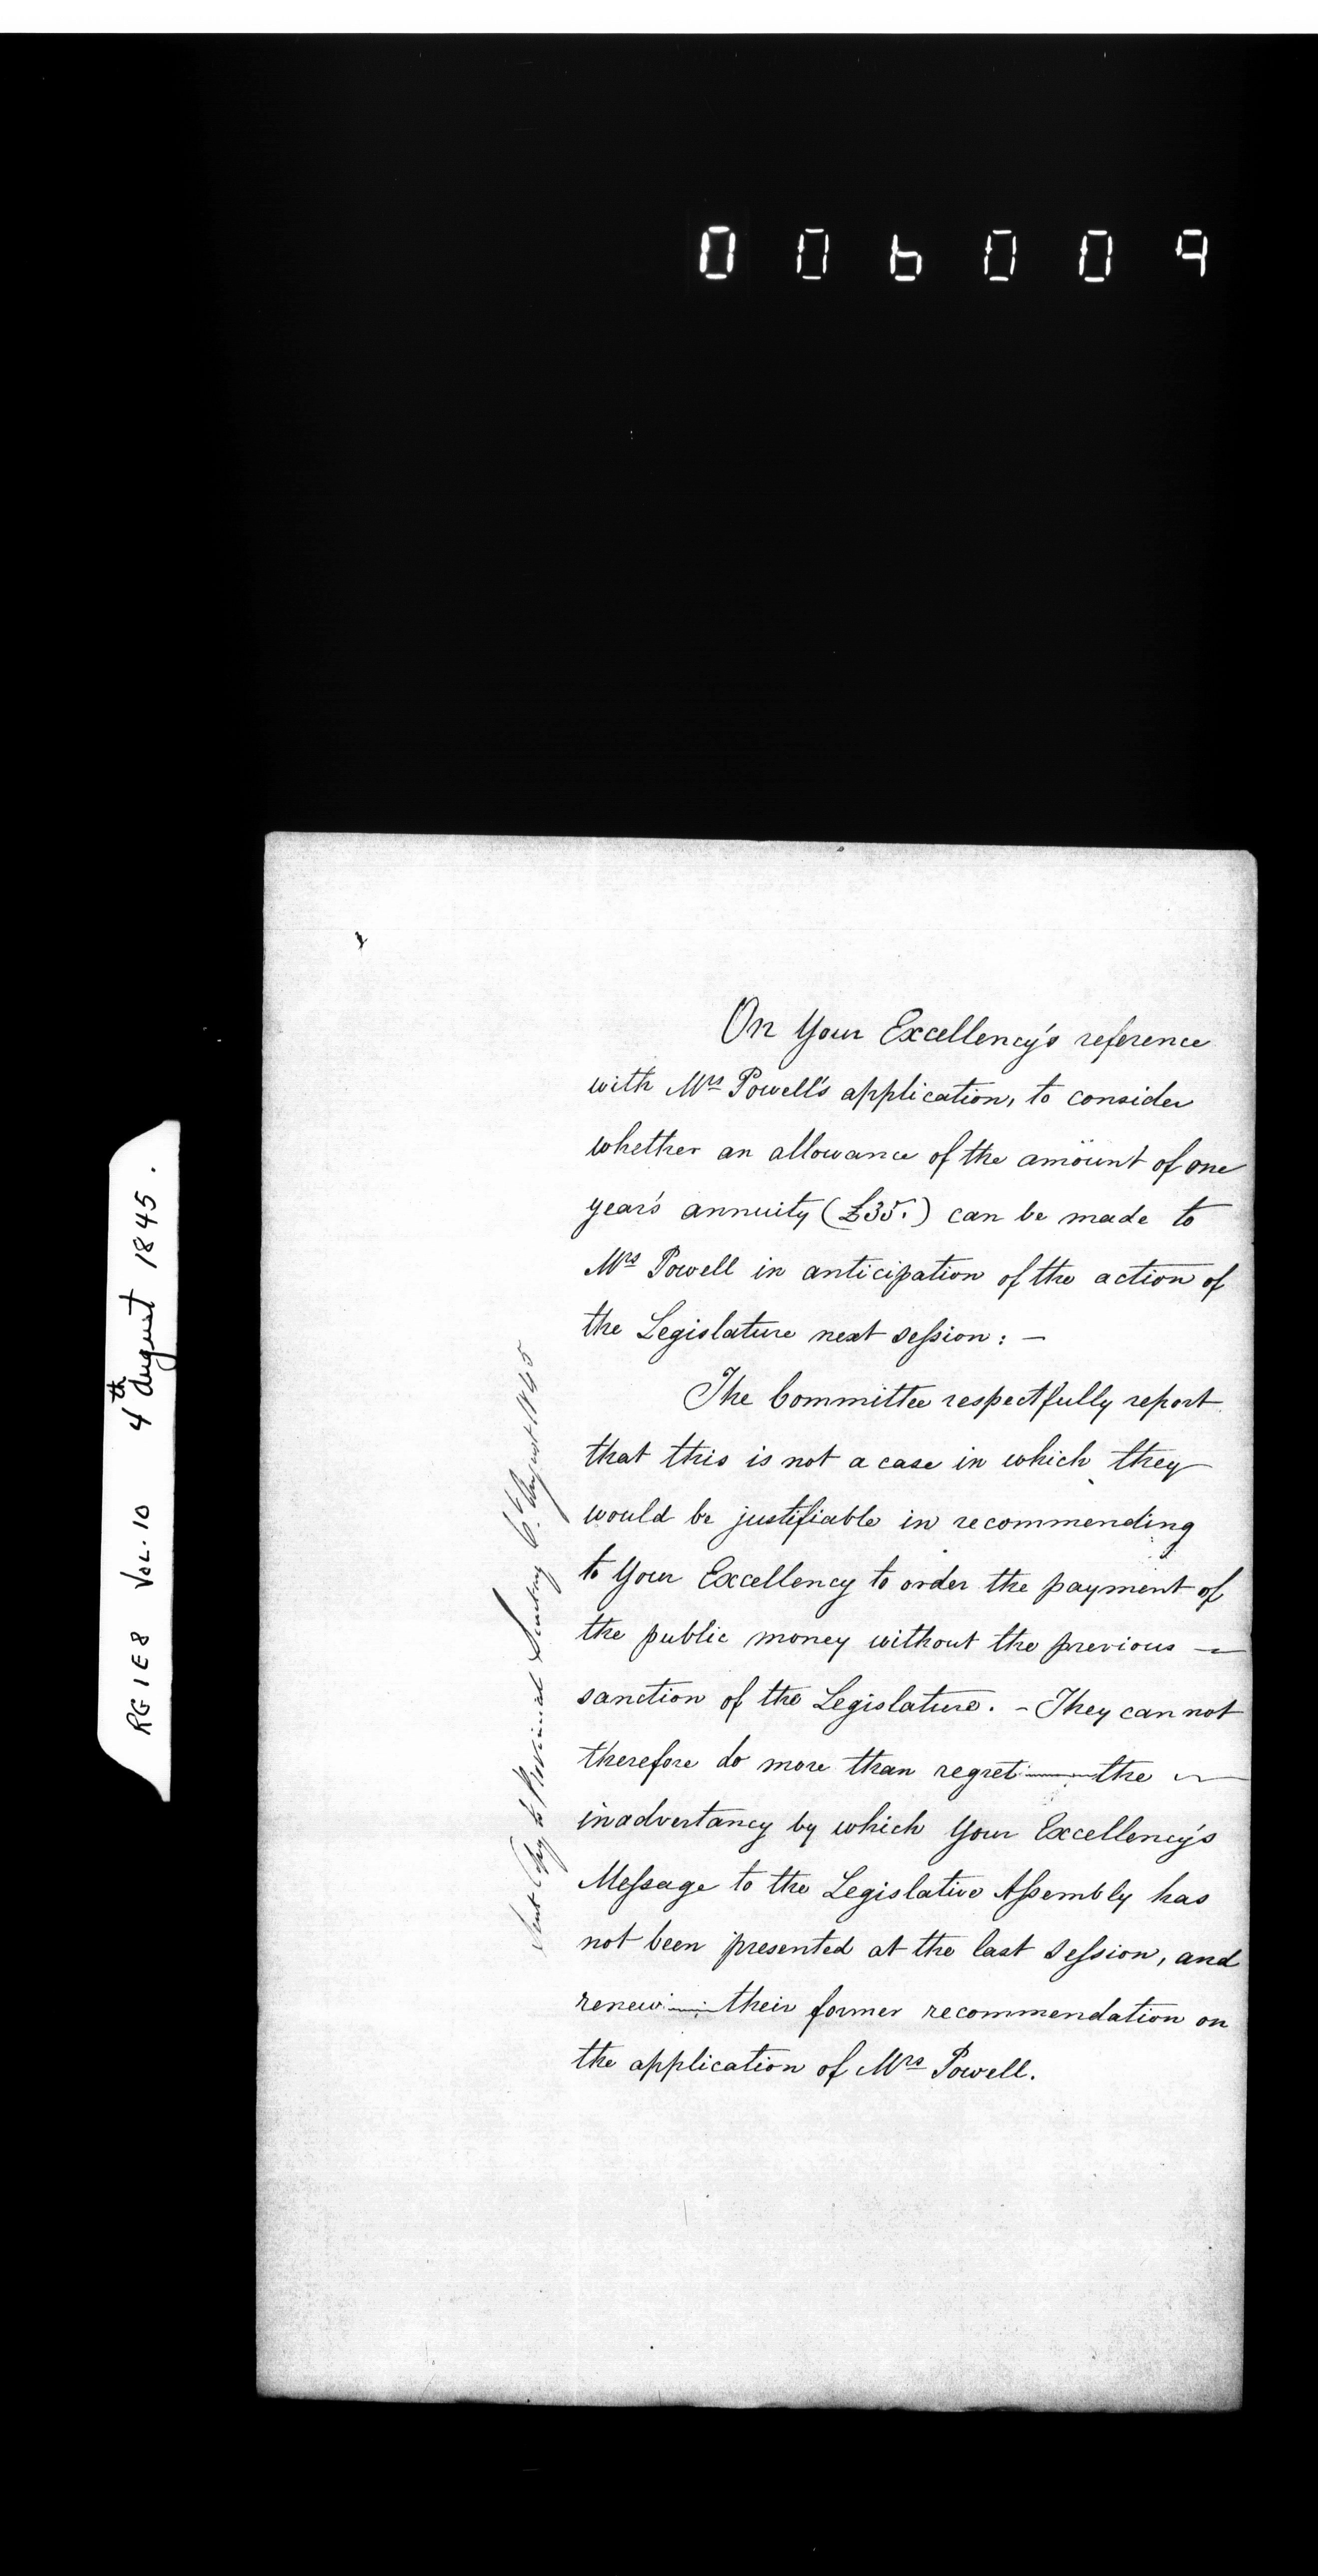 006009
On Your Excellency's reference
with Mrs Powell's application, to consider
whether an allowance of the amount of one
year's annuity (£35.) can be made to
Mrs Powell in anticipation of the action of
the Legislature next session: —
The Committee respectfully report
that this is not a case in which they
would be justifiable in recommending
to Your Excellency to order the payment of
the public money without the previous —
sanction of the Legislature. - They can not
therefore do more than regret — the —
inadvertancy by which Your Excellency's
Message to the Legislative Assembly has
not been presented at the last Session, and
renew — their former recommendation on
the application of Mrs Powell.
Sent Copy to Provincial Secretary 6th August 1845
RG 1 E 8 VOL. 10 4th August 1845.